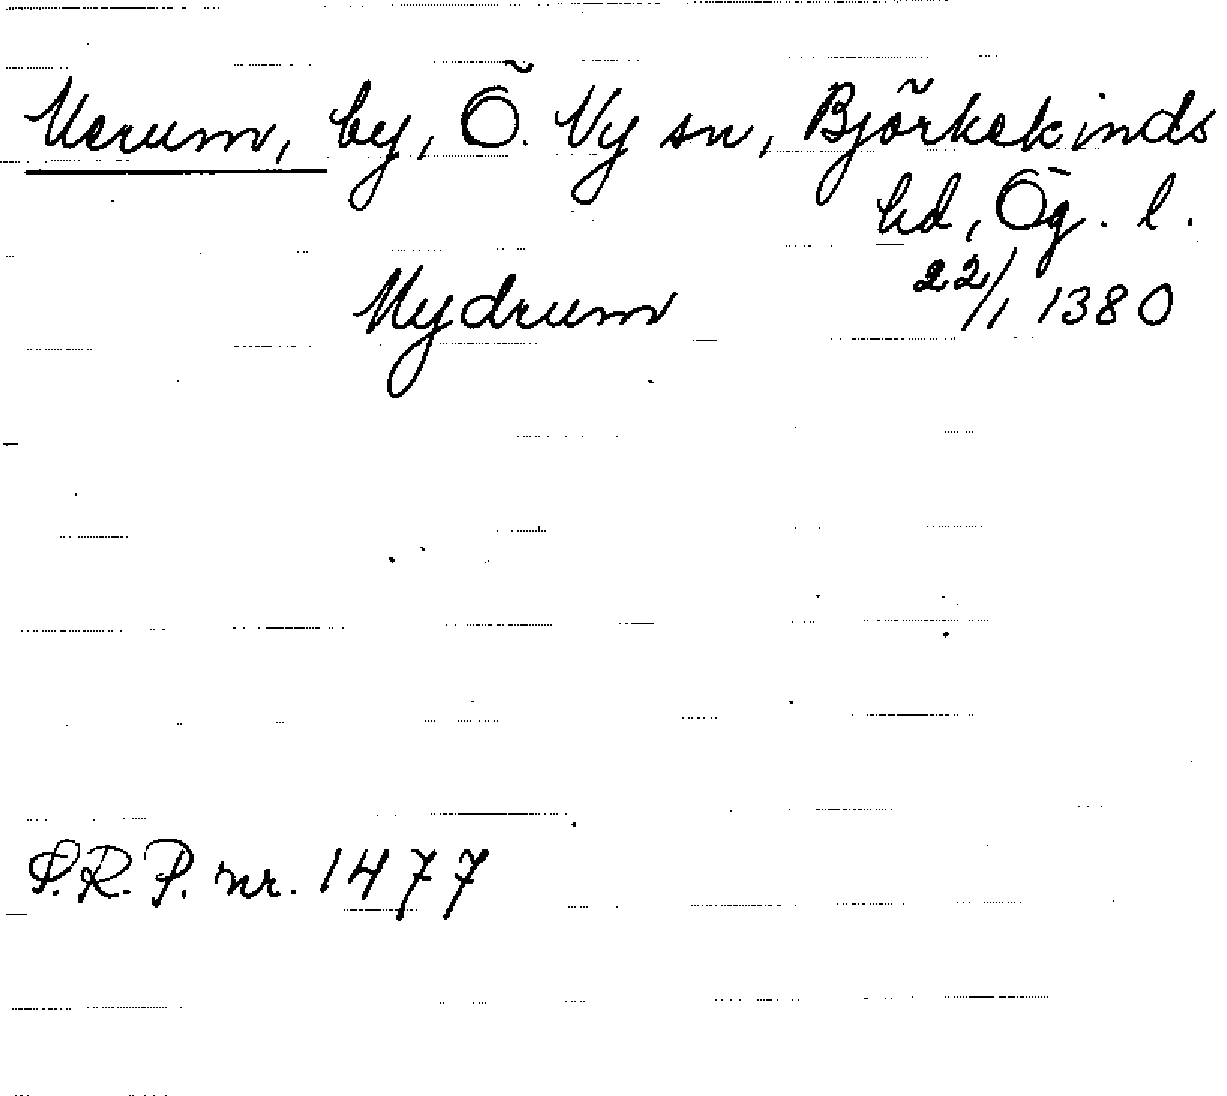 Nerum, by, Ö. Ny sn, Björkekinds
hd, Ög. l.
Nydrum 22/1 1380
S.R.P. nr. 1477